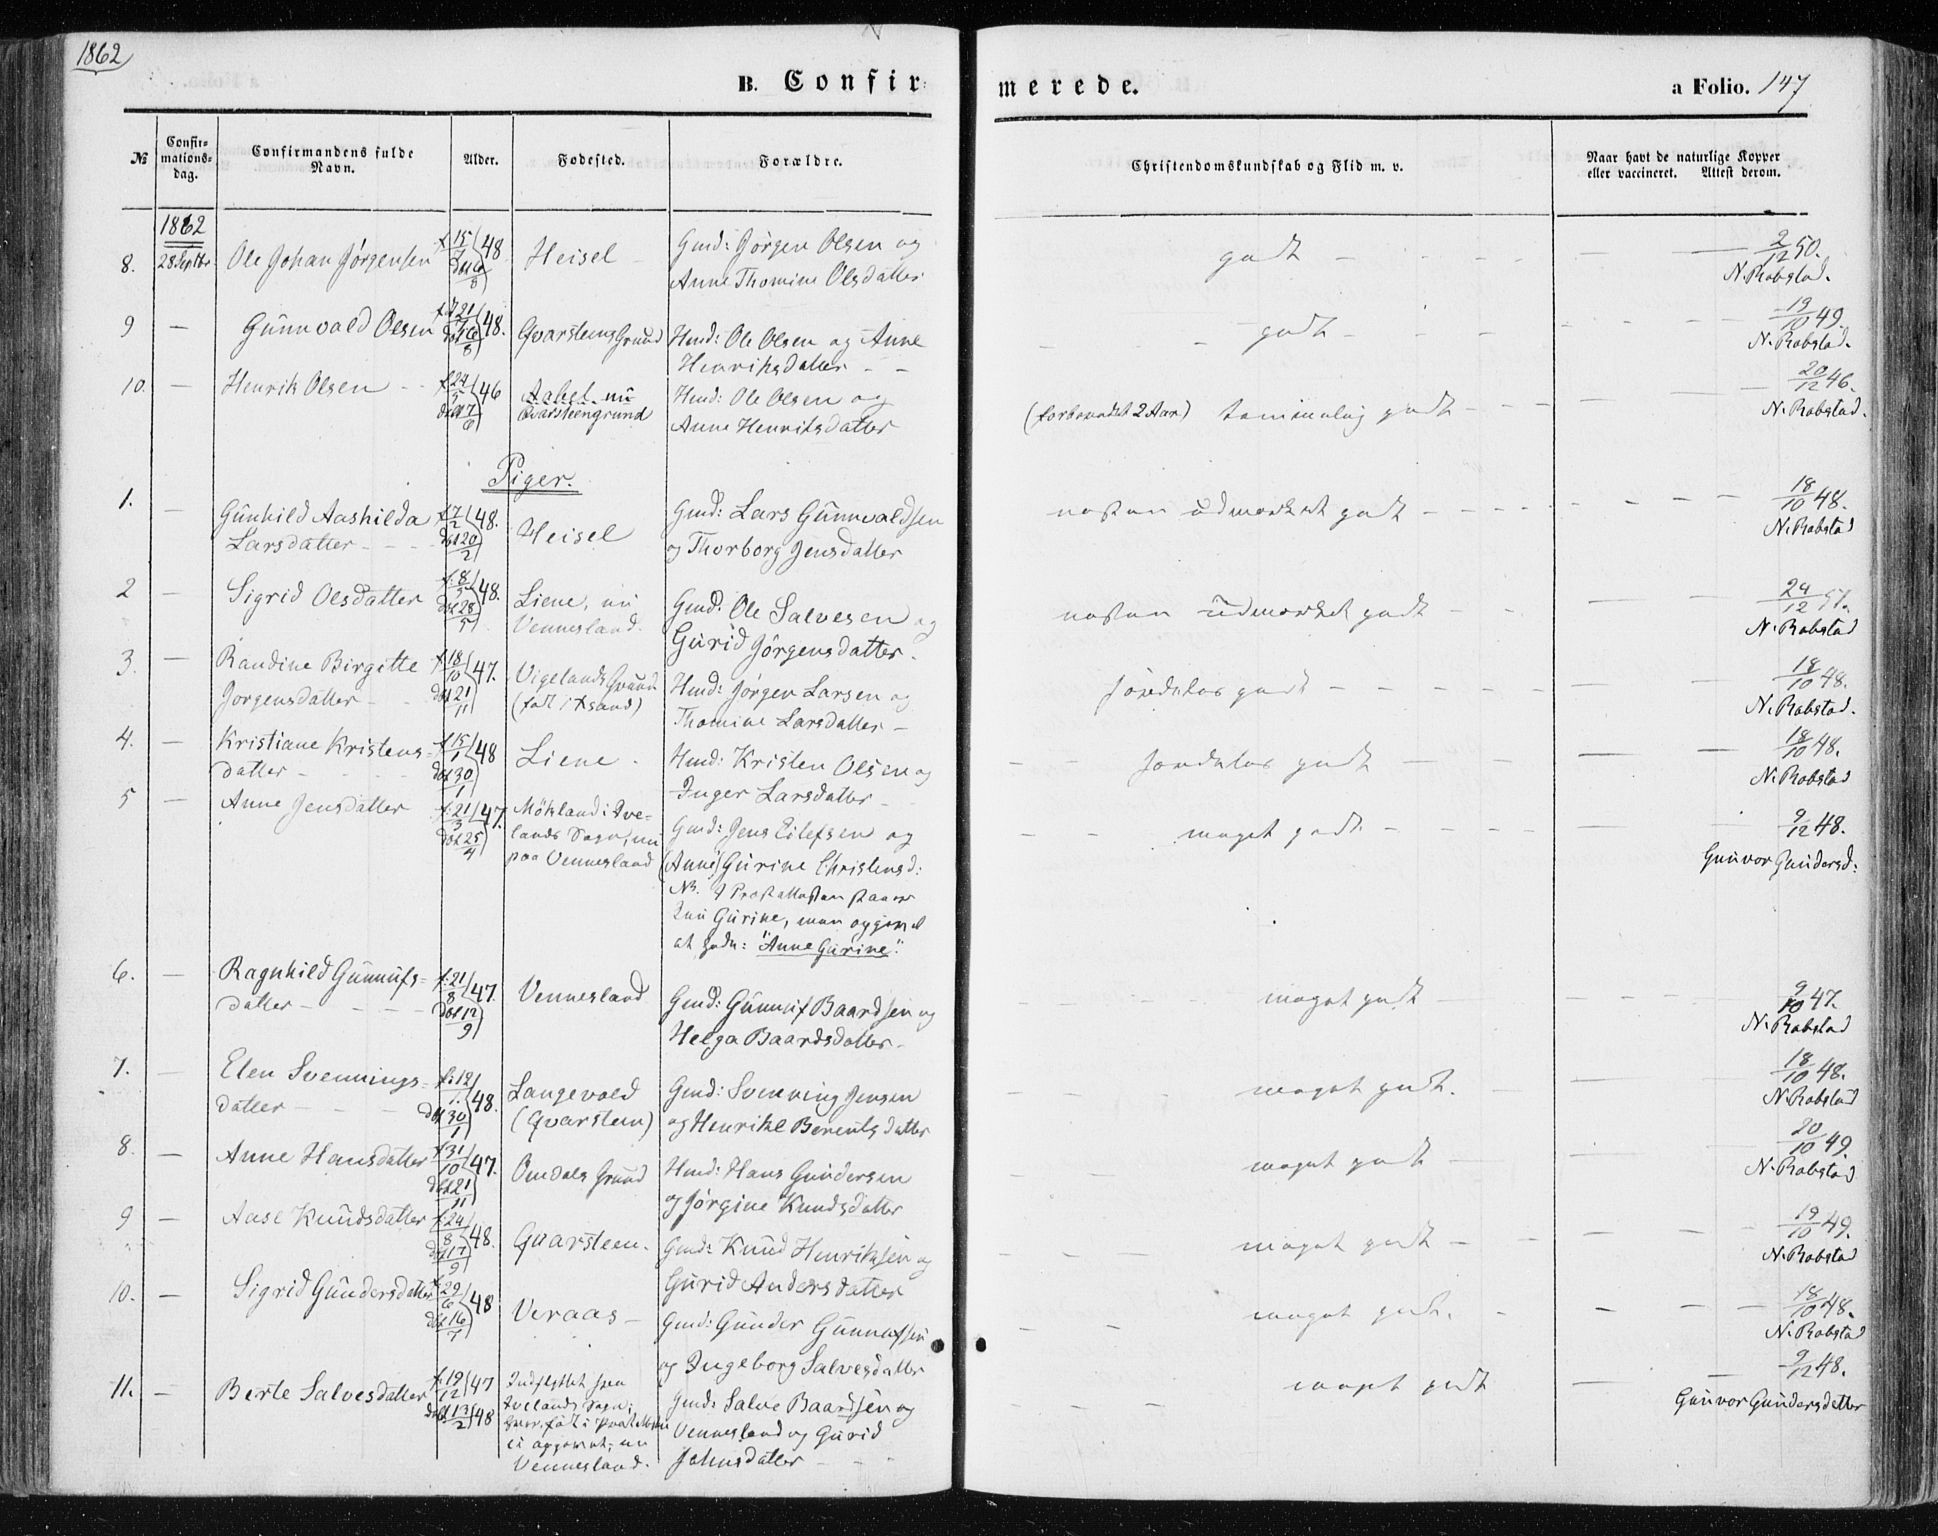 1862
B. Confirmerede.
a Folio. 147
№ Confirmationsdag. Confirmandens fulde Navn. Alder. Fødested. Forældre. Christendomskundskab og Flid m. v. Naar havt de naturlige Kopper eller vaccineret. Attest derom.
1862
8. 28 Septbr Ole Johan Jörgensen f. 15/7 48 döbt 6/8 Heisel Gmd: Jörgen Olsen og godt 2/12 50.
Anne Thomine Olsdatter N. Robstad.
9 — Gunnvald Olsen 48. Qvarsteens Grund Hmd: Ole Olsen og Anne godt 19/10 49.
Henriksdatter N. Robstad.
10. — Henrik Olsen f. 24/5 46 döbt 7/6 nu Qvarsteengrund Hmd: Ole Olsen og (forberedet 2 Aar) temmelig godt 20/12 46.
Anne Henriksdatter N. Robstad.
Piger.
1. Gunhild Aashilda f. 7/2 48. Heisel Gmd: Lars Gunnvaldsen næsten udmærket godt 18/10 48.
Larsdatter döbt 20/2 og Thorborg Jensdatter N. Robstad
2 — Sigrid Olsdatter f: 8/5 48. Liene, nu Gmd: Ole Salvesen og næsten udmærket godt 24/12 51.
döbt 28/5 Vennesland. Gurid Jörgensdatter. N. Robstad
3. — Randine Birgitte f. 18/10 47. Vigelands Grund Hmd: Jörgen Larsen og særdeles godt 18/10 48.
Jorgensdatter döbt 21/11 (født i Xsand) Thomine Larsdatter N. Robstad.
4. — Kristiane Kristens= f. 15/1 48 Liene. Hmd: Kristen Olsen og særdeles godt 18/10 48.
datter döbt 30/1 Inger Larsdatter N. Robstad
5 — Anne Jensdatter f. 21/3 47. Mökland i Ive= Gmd: Jens Eilefsen og meget godt 9/12 48.
döbt 25/4 lands Sogn, nu (Anne) Gurine Christensd: Gunvor Gundersd:
paa Vennesland NB. I Præsteattesten staaer
kun Gurine, men opgivet
at hede: "Anne Gurine".
6. — Ragnhild Gunnufs= f: 21/8 47. Vennesland Gmd: Gunnuf Baardsen og meget godt 9/10 47.
datter döbt 12/9 Helga Baardsdatter N. Robstad
7. — Elen Svennings= f: 12/1 48. Langevold Gmd: Svenning Jensen meget godt. 18/10 48.
datter döbt 30/1 (Qvarsteen) og Henrikke Berentsdatter N. Robstad
8. — Anne Hansdatter f. 31/10 47. Omdals Grund Hmd: Hans Gundersen meget godt 20/10 49.
döbt 21/11 og Jörgine Knudsdatter N. Robstad
9 — Aase Knudsdatter f. 24/8 48. Qvarsteen. Gmd: Knud Henriksen og meget godt 19/10 49.
döbt 17/9 Gurid Andersdatter N. Robstad
10. — Sigrid Gundersdatter f. 29/6 48 Veraas Gmd: Gunder Gunnufsen meget godt. 18/10 48.
döbt 16/7 og Ingeborg Salvesdatter N. Robstad
11. — Berte Salvesdatter f. 19/12 47 Indflyttet fra Gmd: Salve Baardsen og meget godt 9/12 48.
döbt 13/2 48 Ivelands Sogn; Vennesland og Gurid Gunvor Gundersdatter
hvor født i Præsteattesten Johnsdatter
ei opgivet; nu
Vennesland.